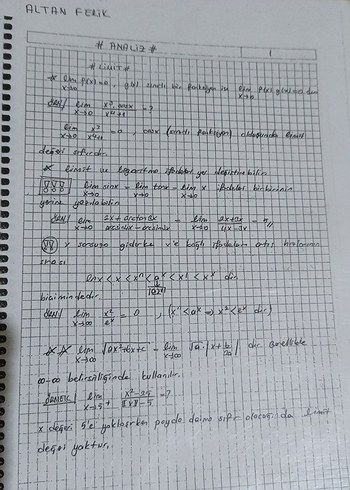 ALTAN FERİK
# ANALİZ #
1
# LİMİT #
* lim x→0 f(x)=0, g(x) sınırlı bir fonksiyon ise lim x→0 f(x)g(x)=0 dır
lim x→0 = ?
lim x→0 = 0, cosx (sınırlı fonksiyon) olduğundan limit
değeri sıfırdır.
* Limit ve logaritma ifadeleri yer değiştirebilir
lim x→0 sinx = lim x→0 tanx = lim x→0 x ifadeleri birbirinin
yerine yazılabilir
lim x→0 2x+arctan3x / = lim x→0 2x+3x / 4x-3x =
x sonsuza giderken x'e bağlı ifadelerin artış hızlarının
sırası
lnx < x < xⁿ < aˣ < x! < xˣ dir
biçimindedir.
lim x→∞ x²/eˣ = 0, (xⁿ<aˣ ⇒ x²<eˣ dir)
** lim x→∞ √ax²+bx+c = lim x→∞ √a·|x+b/2a| dır. Özellikle
∞-∞ belirsizliğinde kullanılır.
ÖRNEK/ lim x→5⁺ x²-25 / ⟦x⟧-5 = ?
x değeri 5'e yaklaşırken payda daima sıfır olacağından limit
değeri yoktur.